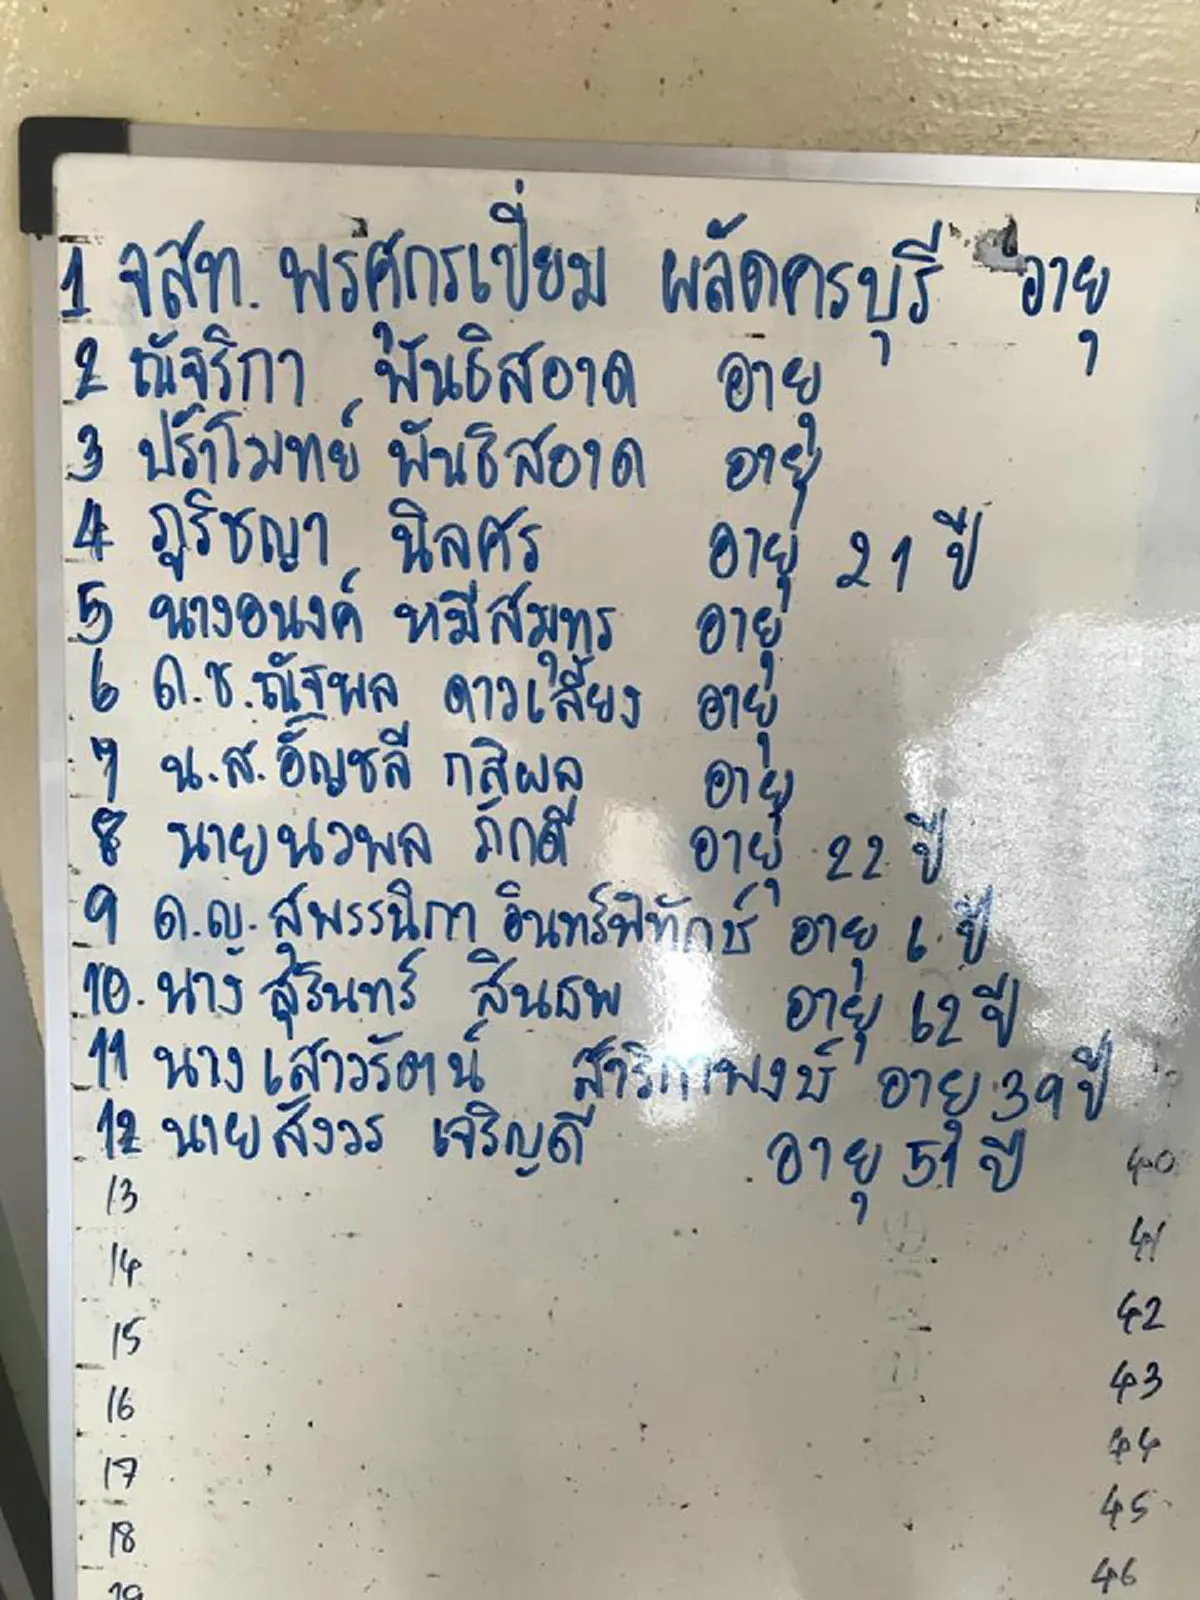 1 จสท. พรศักรเปี่ยม ผลัดครบุรี อายุ
2 ณัจริกา พันธิสอาด อายุ
3 ปราโมทย์ พันธิสอาด อายุ
4 ภูริชญา นิลศร อายุ 21 ปี
5 นางอนงค์ หมีสมุทร อายุ
6 ด.ช.ณัฐพล ดาวเสี้ยง อายุ
7 น.ส.อัญชลี กสิผล อายุ
8 นายนวพล ภักดี อายุ 22 ปี
9 ด.ญ. สุพรรนิกา อินทร์พิทักษ์ อายุ 6 ปี
10. นาง สุรินทร์ สินธพ อายุ 62 ปี
11 นางเสาวรัตน์ สาริกาพงษ์ อายุ 39 ปี
12 นายสังวร เจริญดี อายุ 51 ปี
13 40
14 41
15 42
16 43
17 44
18 45
19 46